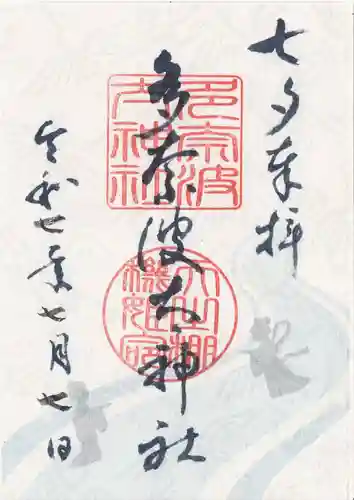 七夕奉拝
多奈波太神社
令和七年七月七日
多奈波太神社